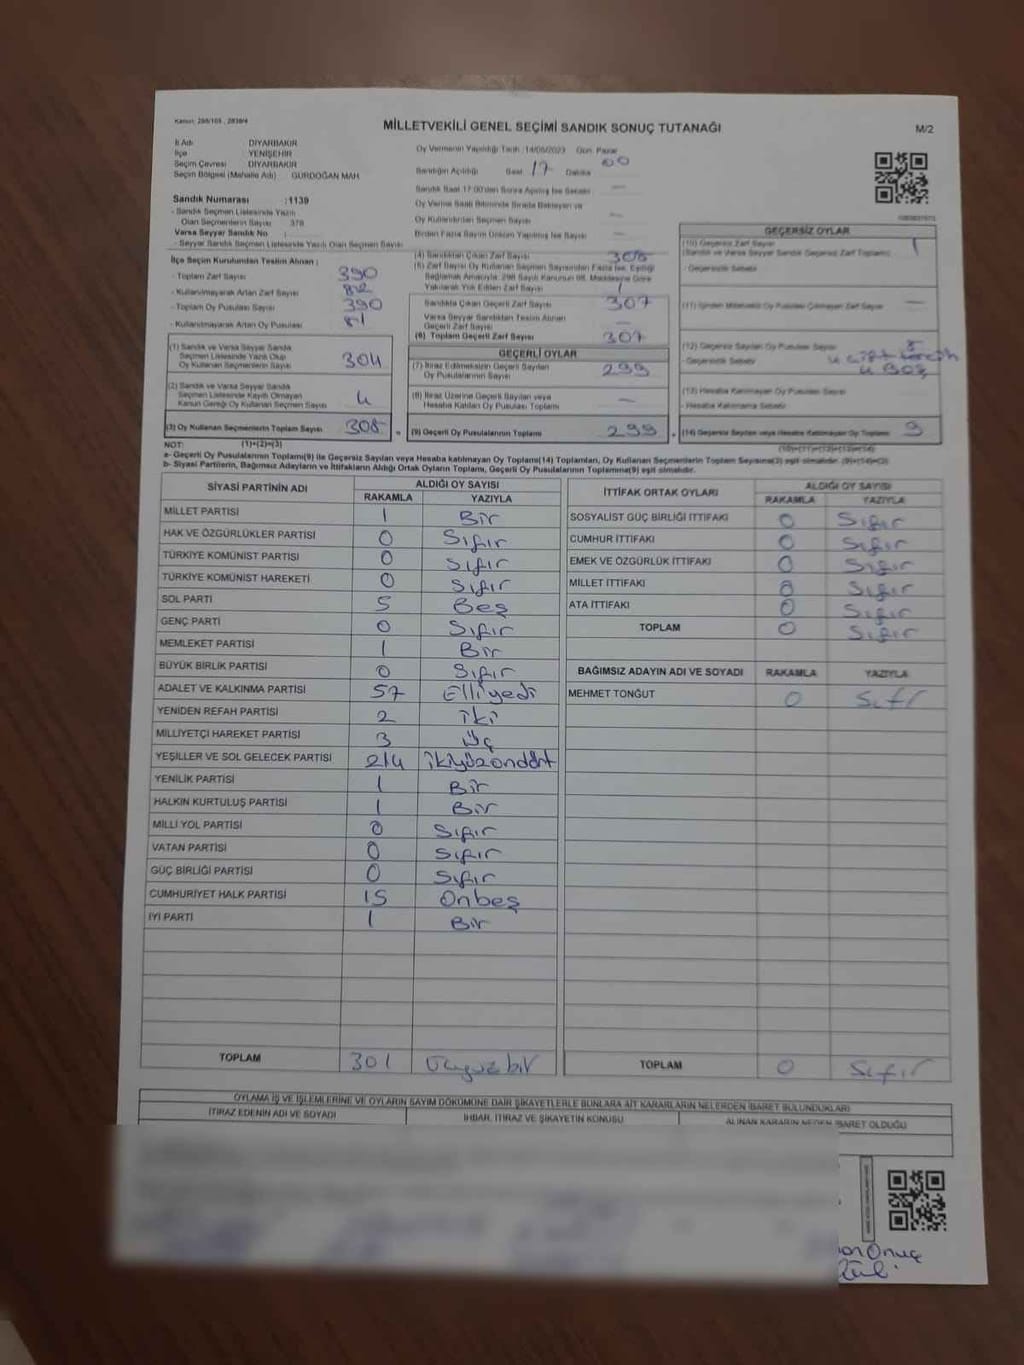 Kanun: 298/105 , 2839/4
MİLLETVEKİLİ GENEL SEÇİMİ SANDIK SONUÇ TUTANAĞI
M/2
İl Adı DİYARBAKIR
İlçe YENİŞEHİR
Seçim Çevresi DİYARBAKIR
Seçim Bölgesi (Mahalle Adı) GÜRDOĞAN MAH.
Sandık Numarası :1139
- Sandık Seçmen Listesinde Yazılı
Olan Seçmenlerin Sayısı 378
Varsa Seyyar Sandık No
- Seyyar Sandık Seçmen Listesinde Yazılı Olan Seçmen Sayısı
İlçe Seçim Kurulundan Teslim Alınan ;
- Toplam Zarf Sayısı 390
- Kullanılmayarak Artan Zarf Sayısı 82
- Toplam Oy Pusulası Sayısı 390
- Kullanılmayarak Artan Oy Pusulası 81
(1) Sandık ve Varsa Seyyar Sandık
Seçmen Listesinde Yazılı Olup
Oy Kullanan Seçmenlerin Sayısı 304
(2) Sandık ve Varsa Seyyar Sandık
Seçmen Listesinde Kayıtlı Olmayan
Kanun Gereği Oy Kullanan Seçmen Sayısı 4
(3) Oy Kullanan Seçmenlerin Toplam Sayısı 308
Oy Vermenin Yapıldığı Tarih :14/05/2023 Gün: Pazar
Sandığın Açıldığı Saat 17 Dakika 00
Sandık Saat 17:00'den Sonra Açılmış İse Sebebi —
Oy Verme Saati Bitiminde Sırada Bekleyen ve
Oy Kullandırılan Seçmen Sayısı —
Birden Fazla Sayım Döküm Yapılmış İse Sayısı —
(4) Sandıktan Çıkan Zarf Sayısı 308
(5) Zarf Sayısı Oy Kullanan Seçmen Sayısından Fazla İse, Eşitliği
Sağlamak Amacıyla, 298 Sayılı Kanunun 98. Maddesine Göre
Yakılarak Yok Edilen Zarf Sayısı
Sandıkta Çıkan Geçerli Zarf Sayısı 307
Varsa Seyyar Sandıktan Teslim Alınan
Geçerli Zarf Sayısı —
(6) Toplam Geçerli Zarf Sayısı 307
GEÇERLİ OYLAR
(7) İtiraz Edilmeksizin Geçerli Sayılan
Oy Pusulalarının Sayısı 299
(8) İtiraz Üzerine Geçerli Sayılan veya
Hesaba Katılan Oy Pusulası Toplamı —
(9) Geçerli Oy Pusulalarının Toplamı 299
GEÇERSİZ OYLAR
(10) Geçersiz Zarf Sayısı 1
(Sandık ve Varsa Seyyar Sandık Geçersiz Zarf Toplamı)
- Geçersizlik Sebebi
(11) İçinden Milletvekili Oy Pusulası Çıkmayan Zarf Sayısı —
(12) Geçersiz Sayılan Oy Pusulası Sayısı 8
- Geçersizlik Sebebi 4 çift tercih
4 Boş
(13) Hesaba Katılmayan Oy Pusulası Sayısı
- Hesaba Katılmama Sebebi
(14) Geçersiz Sayılan veya Hesaba Katılmayan Oy Toplamı 9
NOT: (1)+(2)=(3) (10)+(11)+(12)+(13)=(14)
a- Geçerli Oy Pusulalarının Toplamı(9) ile Geçersiz Sayılan veya Hesaba katılmayan Oy Toplamı(14) Toplamları, Oy Kullanan Seçmenlerin Toplam Sayısına(3) eşit olmalıdır. (9)+(14)=(3)
b- Siyasi Partilerin, Bağımsız Adayların ve İttifakların Aldığı Ortak Oyların Toplamı, Geçerli Oy Pusulalarının Toplamına(9) eşit olmalıdır.
SİYASİ PARTİNİN ADI ALDIĞI OY SAYISI
RAKAMLA YAZIYLA
MİLLET PARTİSİ 1 Bir
HAK VE ÖZGÜRLÜKLER PARTİSİ 0 Sıfır
TÜRKİYE KOMÜNİST PARTİSİ 0 Sıfır
TÜRKİYE KOMÜNİST HAREKETİ 0 Sıfır
SOL PARTİ 5 Beş
GENÇ PARTİ 0 Sıfır
MEMLEKET PARTİSİ 1 Bir
BÜYÜK BİRLİK PARTİSİ 0 Sıfır
ADALET VE KALKINMA PARTİSİ 57 Elliyedi
YENİDEN REFAH PARTİSİ 2 iki
MİLLİYETÇİ HAREKET PARTİSİ 3 Üç
YEŞİLLER VE SOL GELECEK PARTİSİ 214 ikiyüzondört
YENİLİK PARTİSİ 1 Bir
HALKIN KURTULUŞ PARTİSİ 1 Bir
MİLLİ YOL PARTİSİ 0 Sıfır
VATAN PARTİSİ 0 Sıfır
GÜÇ BİRLİĞİ PARTİSİ 0 Sıfır
CUMHURİYET HALK PARTİSİ 15 Onbeş
İYİ PARTİ 1 Bir
TOPLAM 301 Üçyüzbir
İTTİFAK ORTAK OYLARI ALDIĞI OY SAYISI
RAKAMLA YAZIYLA
SOSYALİST GÜÇ BİRLİĞİ İTTİFAKI 0 Sıfır
CUMHUR İTTİFAKI 0 Sıfır
EMEK VE ÖZGÜRLÜK İTTİFAKI 0 Sıfır
MİLLET İTTİFAKI 0 Sıfır
ATA İTTİFAKI 0 Sıfır
TOPLAM 0 Sıfır
BAĞIMSIZ ADAYIN ADI VE SOYADI RAKAMLA YAZIYLA
MEHMET TONĞUT 0 Sıfır
TOPLAM 0 Sıfır
OYLAMA İŞ VE İŞLEMLERİNE VE OYLARIN SAYIM DÖKÜMÜNE DAİR ŞİKAYETLERLE BUNLARA AİT KARARLARIN NELERDEN İBARET BULUNDUKLARI
İTİRAZ EDENİN ADI VE SOYADI İHBAR, İTİRAZ VE ŞİKAYETİN KONUSU ALINAN KARARIN NEDEN İBARET OLDUĞU